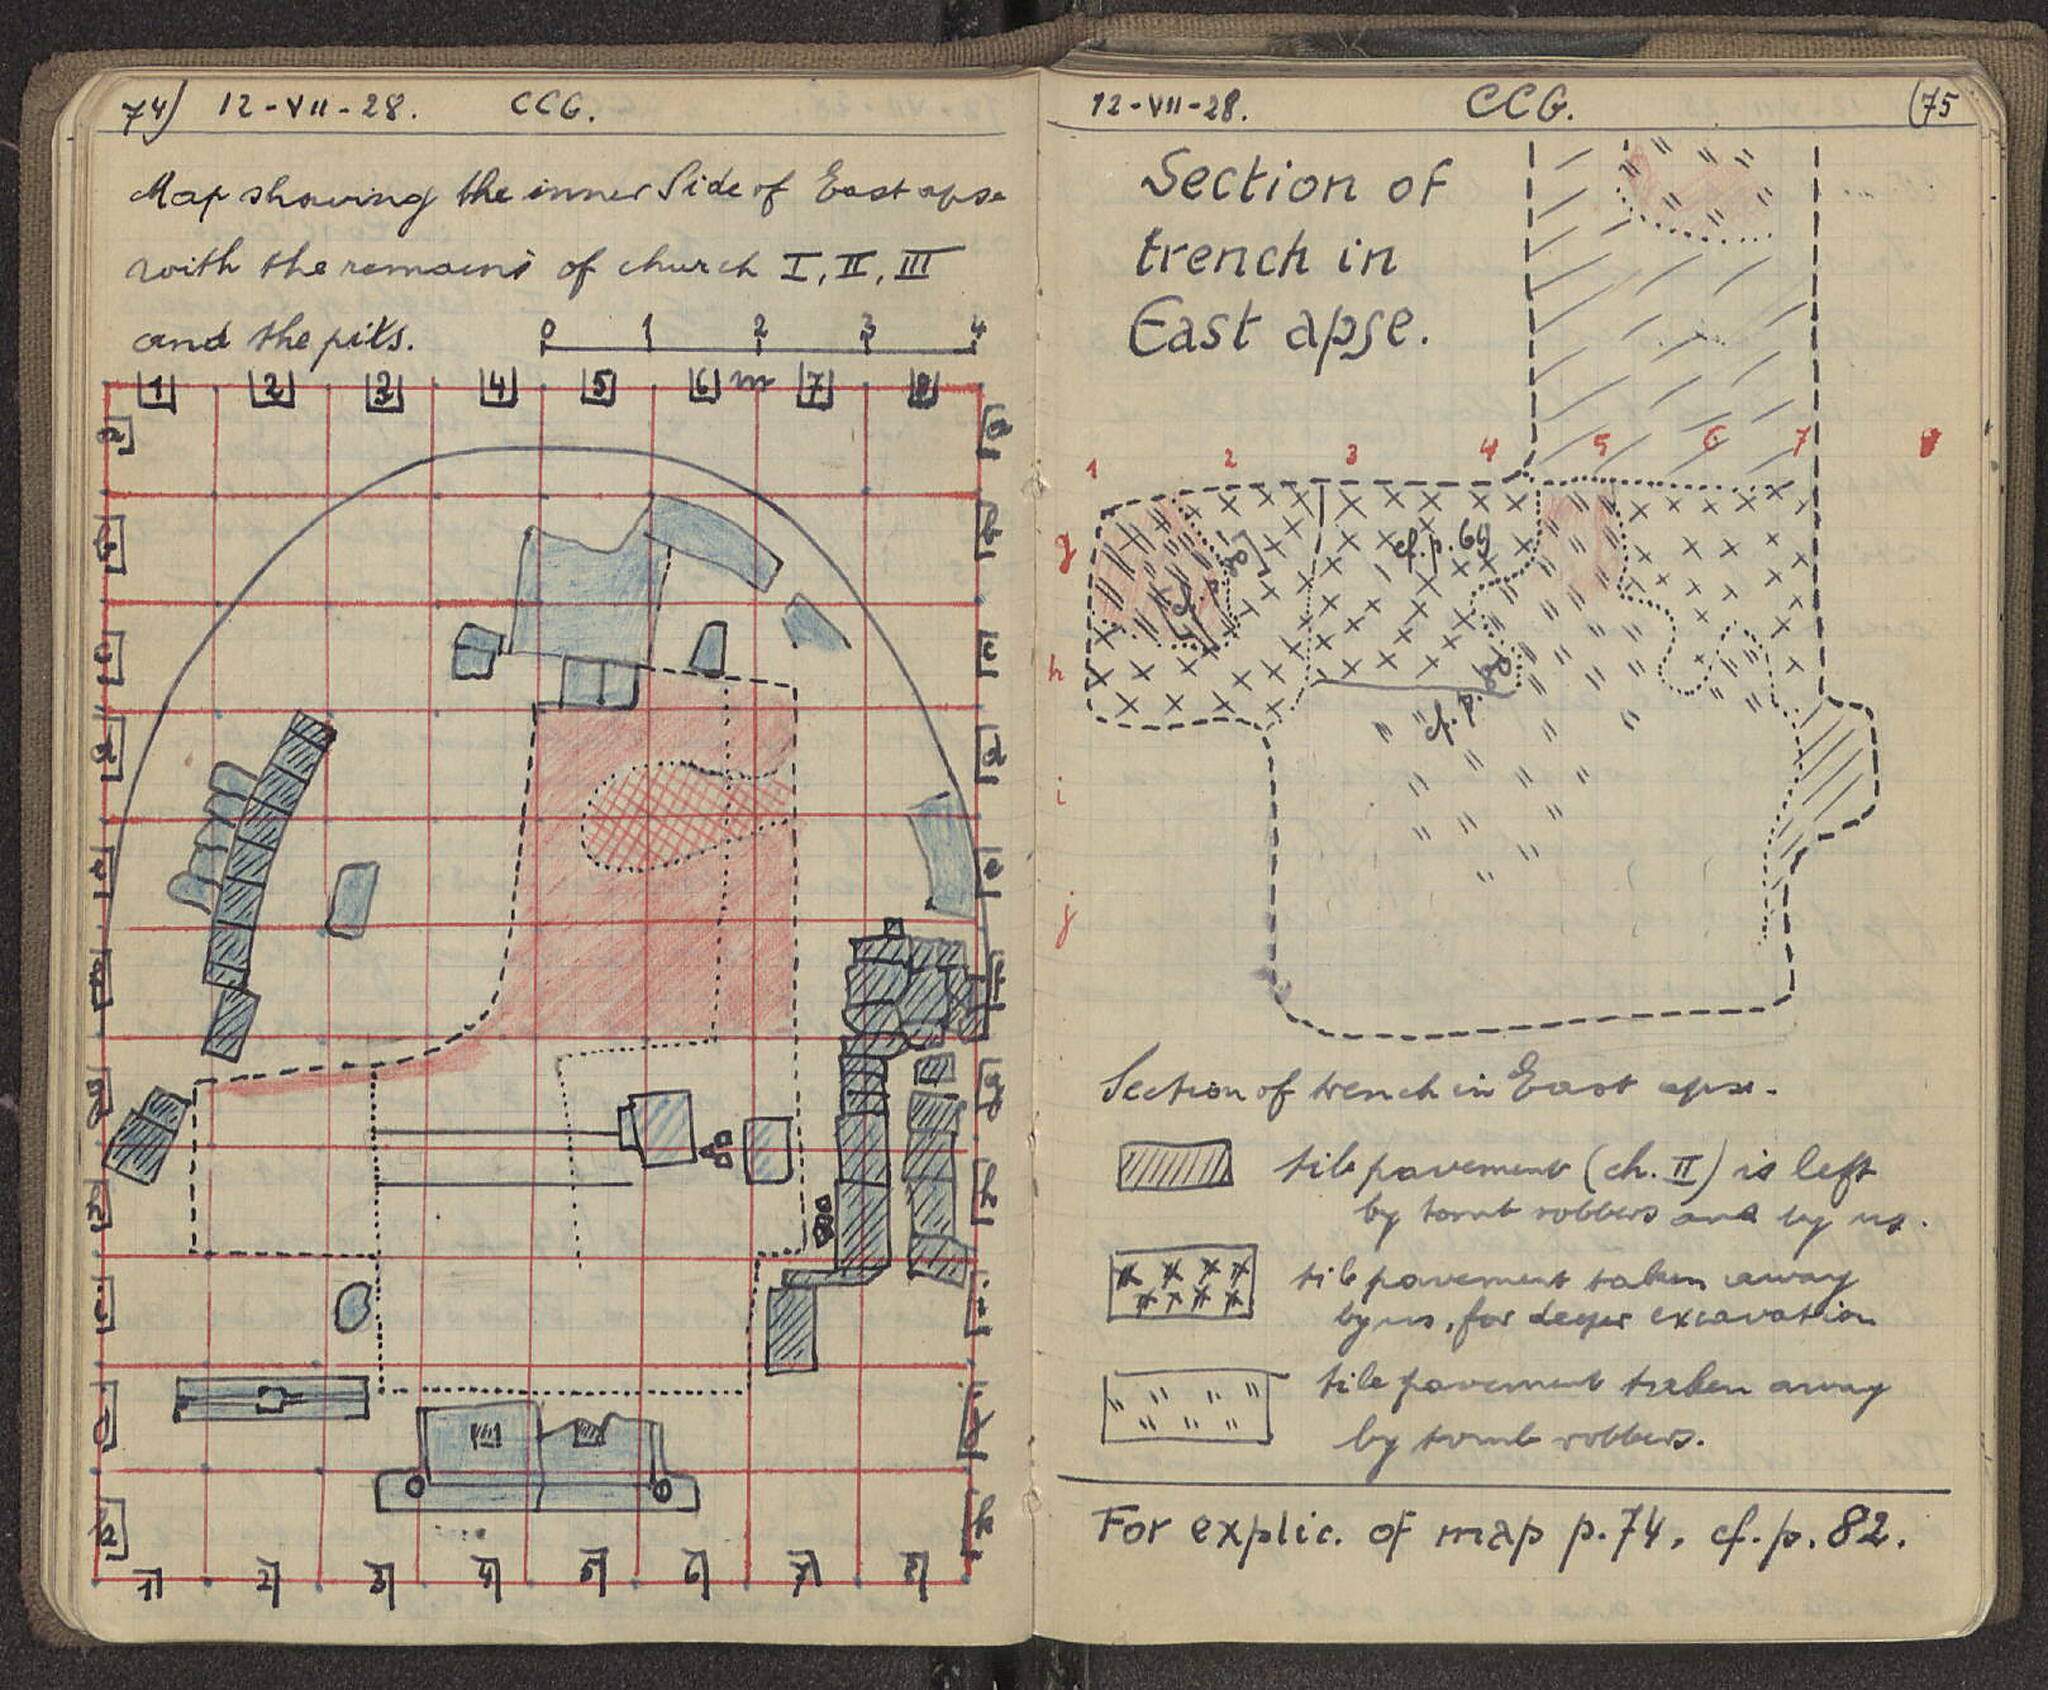 74) 12-VII-28. CCG.
Map showing the inner Side of East apse
with the remains of church I, II, III
and the pits.
0 1 2 3 4
m
1 2 3 4 5 6 7 8
a a
b
c c
d d
e e
f
g g
h h
i i
j j
k k
1 2 3 4 5 6 7 8
12-VII-28. CCG. (75
Section of
trench in
East apse.
1 2 3 4 5 6 7 8
g
h
i
j
cf. p. 69
cf. p.
Section of trench in East apse.
tile pavement (ch. II) is left
by tomb robbers and by us.
tile pavement taken away
by us, for deeper excavation
tile pavement taken away
by tomb robbers.
For explic. of map p. 74, cf. p. 82.